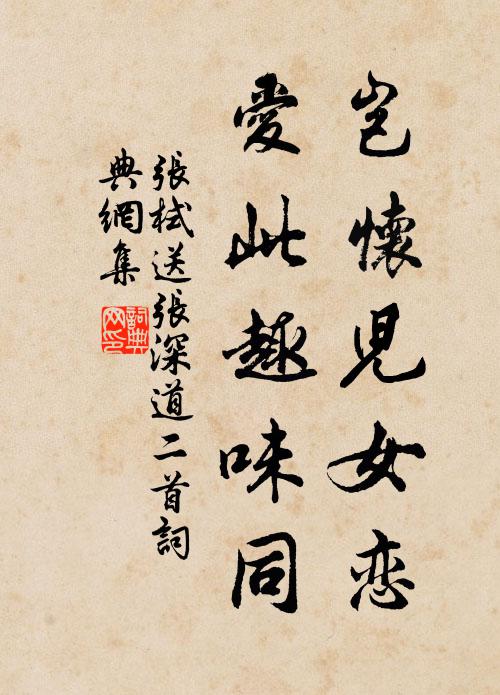 豈懷兒女戀
愛此趣味同
張栻送張深道二首詞
典網集
詞典
网印